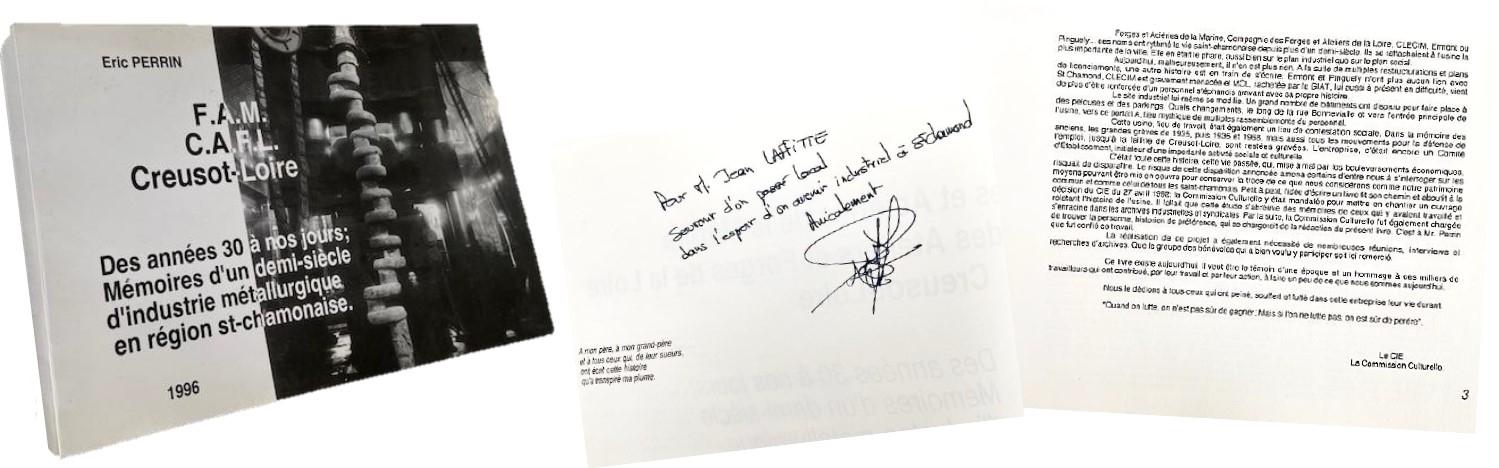 Eric PERRIN
F.A.M.
C.A.F.L.
Creusot-Loire
Des années 30 à nos jours;
Mémoires d'un demi-siècle
d'industrie métallurgique
en région st-chamonaise.
1996
Pour M. Jean LAFFITTE
Souvenir d'un passé local
dans l'espoir d'un avenir industriel à St Chamond
Amicalement
A mon père, à mon grand-père
et à tous ceux qui, de leur sueurs,
ont écrit cette histoire
qu'a transpiré ma plume.
Forges et Aciéries de la Marine, Compagnie des Forges et Ateliers de la Loire, CLECIM, Ermont ou
Pinguely... ces noms ont rythmé la vie saint-chamonaise depuis plus d'un demi-siècle. Ils se rattachaient à l'usine la
plus importante de la ville. Elle en était le phare, aussi bien sur le plan industriel que sur le plan social.
Aujourd'hui, malheureusement, il n'en est plus rien. A la suite de multiples restructurations et plans
de licenciements, une autre histoire est en train de s'écrire. Ermont et Pinguely n'ont plus aucun lien avec
St Chamond, CLECIM est gravement menacée et MCL, rachetée par le GIAT, lui aussi à présent en difficulté, vient
de plus d'être renforcée d'un personnel stéphanois arrivant avec sa propre histoire.
Le site industriel lui même se modifie. Un grand nombre de bâtiments ont disparu pour faire place à
des pelouses et des parkings. Quels changements, le long de la rue Bonnevialle et vers l'entrée principale de
l'usine, vers ce portail A, lieu mythique de multiples rassemblements du personnel.
Cette usine, lieu de travail, était également un lieu de contestation sociale. Dans la mémoire des
anciens, les grandes grèves de 1935, puis 1936 et 1968, mais aussi tous les mouvements pour la défense de
l'emploi, jusqu'à la faillite de Creusot-Loire, sont restées gravées. L'entreprise, c'était encore un Comité
d'Etablissement, initiateur d'une importante activité sociale et culturelle.
C'était toute cette histoire, cette vie passée, qui, mise à mal par les bouleversements économiques,
risquait de disparaître. Le risque de cette disparition annoncée amena certains d'entre nous à s'interroger sur les
moyens pouvant être mis en oeuvre pour conserver la trace de ce que nous considérons comme notre patrimoine
commun et comme celui de tous les saint-chamonais. Petit à petit, l'idée d'écrire un livre fit son chemin et aboutit à la
décision du CIE du 27 avril 1992: la Commission Culturelle y était mandatée pour mettre en chantier un ouvrage
relatant l'histoire de l'usine. Il fallait que cette étude s'abreuve des mémoires de ceux qui y avaient travaillé et
s'enracine dans les archives industrielles et syndicales. Par la suite, la Commission Culturelle fut également chargée
de trouver la personne, historien de préférence, qui se chargeroit de la rédaction du présent livre. C'est à Mr. Perrin
que fut confié ce travail.
La réalisation de ce projet a également nécessité de nombreuses réunions, interviews et
recherches d'archives. Que le groupe des bénévoles qui a bien voulu y participer soit ici remercié.
Ce livre existe aujourd'hui. Il veut être le témoin d'une époque et un hommage à ces milliers de
travailleurs qui ont contribué, par leur travail et par leur action, à faire un peu de ce que nous sommes aujourd'hui.
Nous le dédions à tous ceux qui ont peiné, souffert et lutté dans cette entreprise leur vie durant.
"Quand on lutte, on n'est pas sûr de gagner; Mais si l'on ne lutte pas, on est sûr de perdre".
Le CIE
La Commission Culturelle.
3